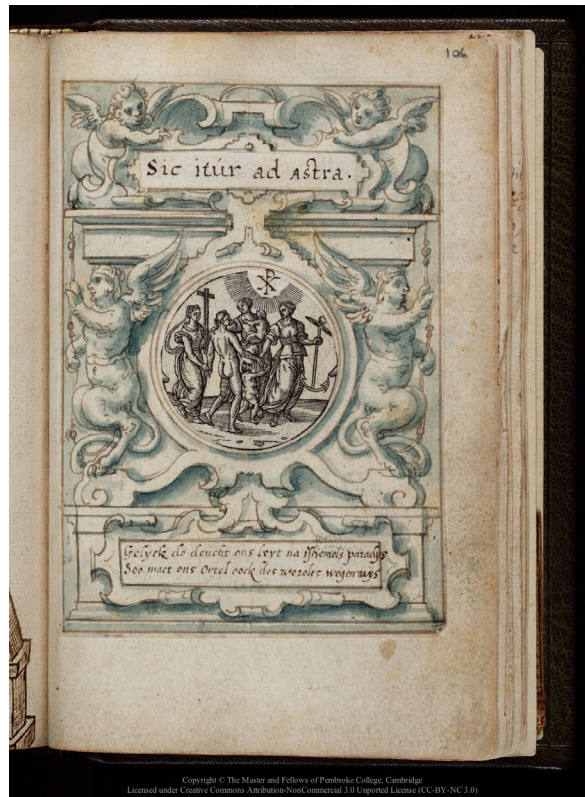 106
Sic itur ad Astra.
Gelyck de deucht ons leyt na tshemels paradys
Soo mact ons Ortel oock des werelts wegen wys
Copyright © The Master and Fellows of Pembroke College, Cambridge
Licensed under Creative Commons Attribution-NonCommercial 3.0 Unported License (CC-BY-NC 3.0)